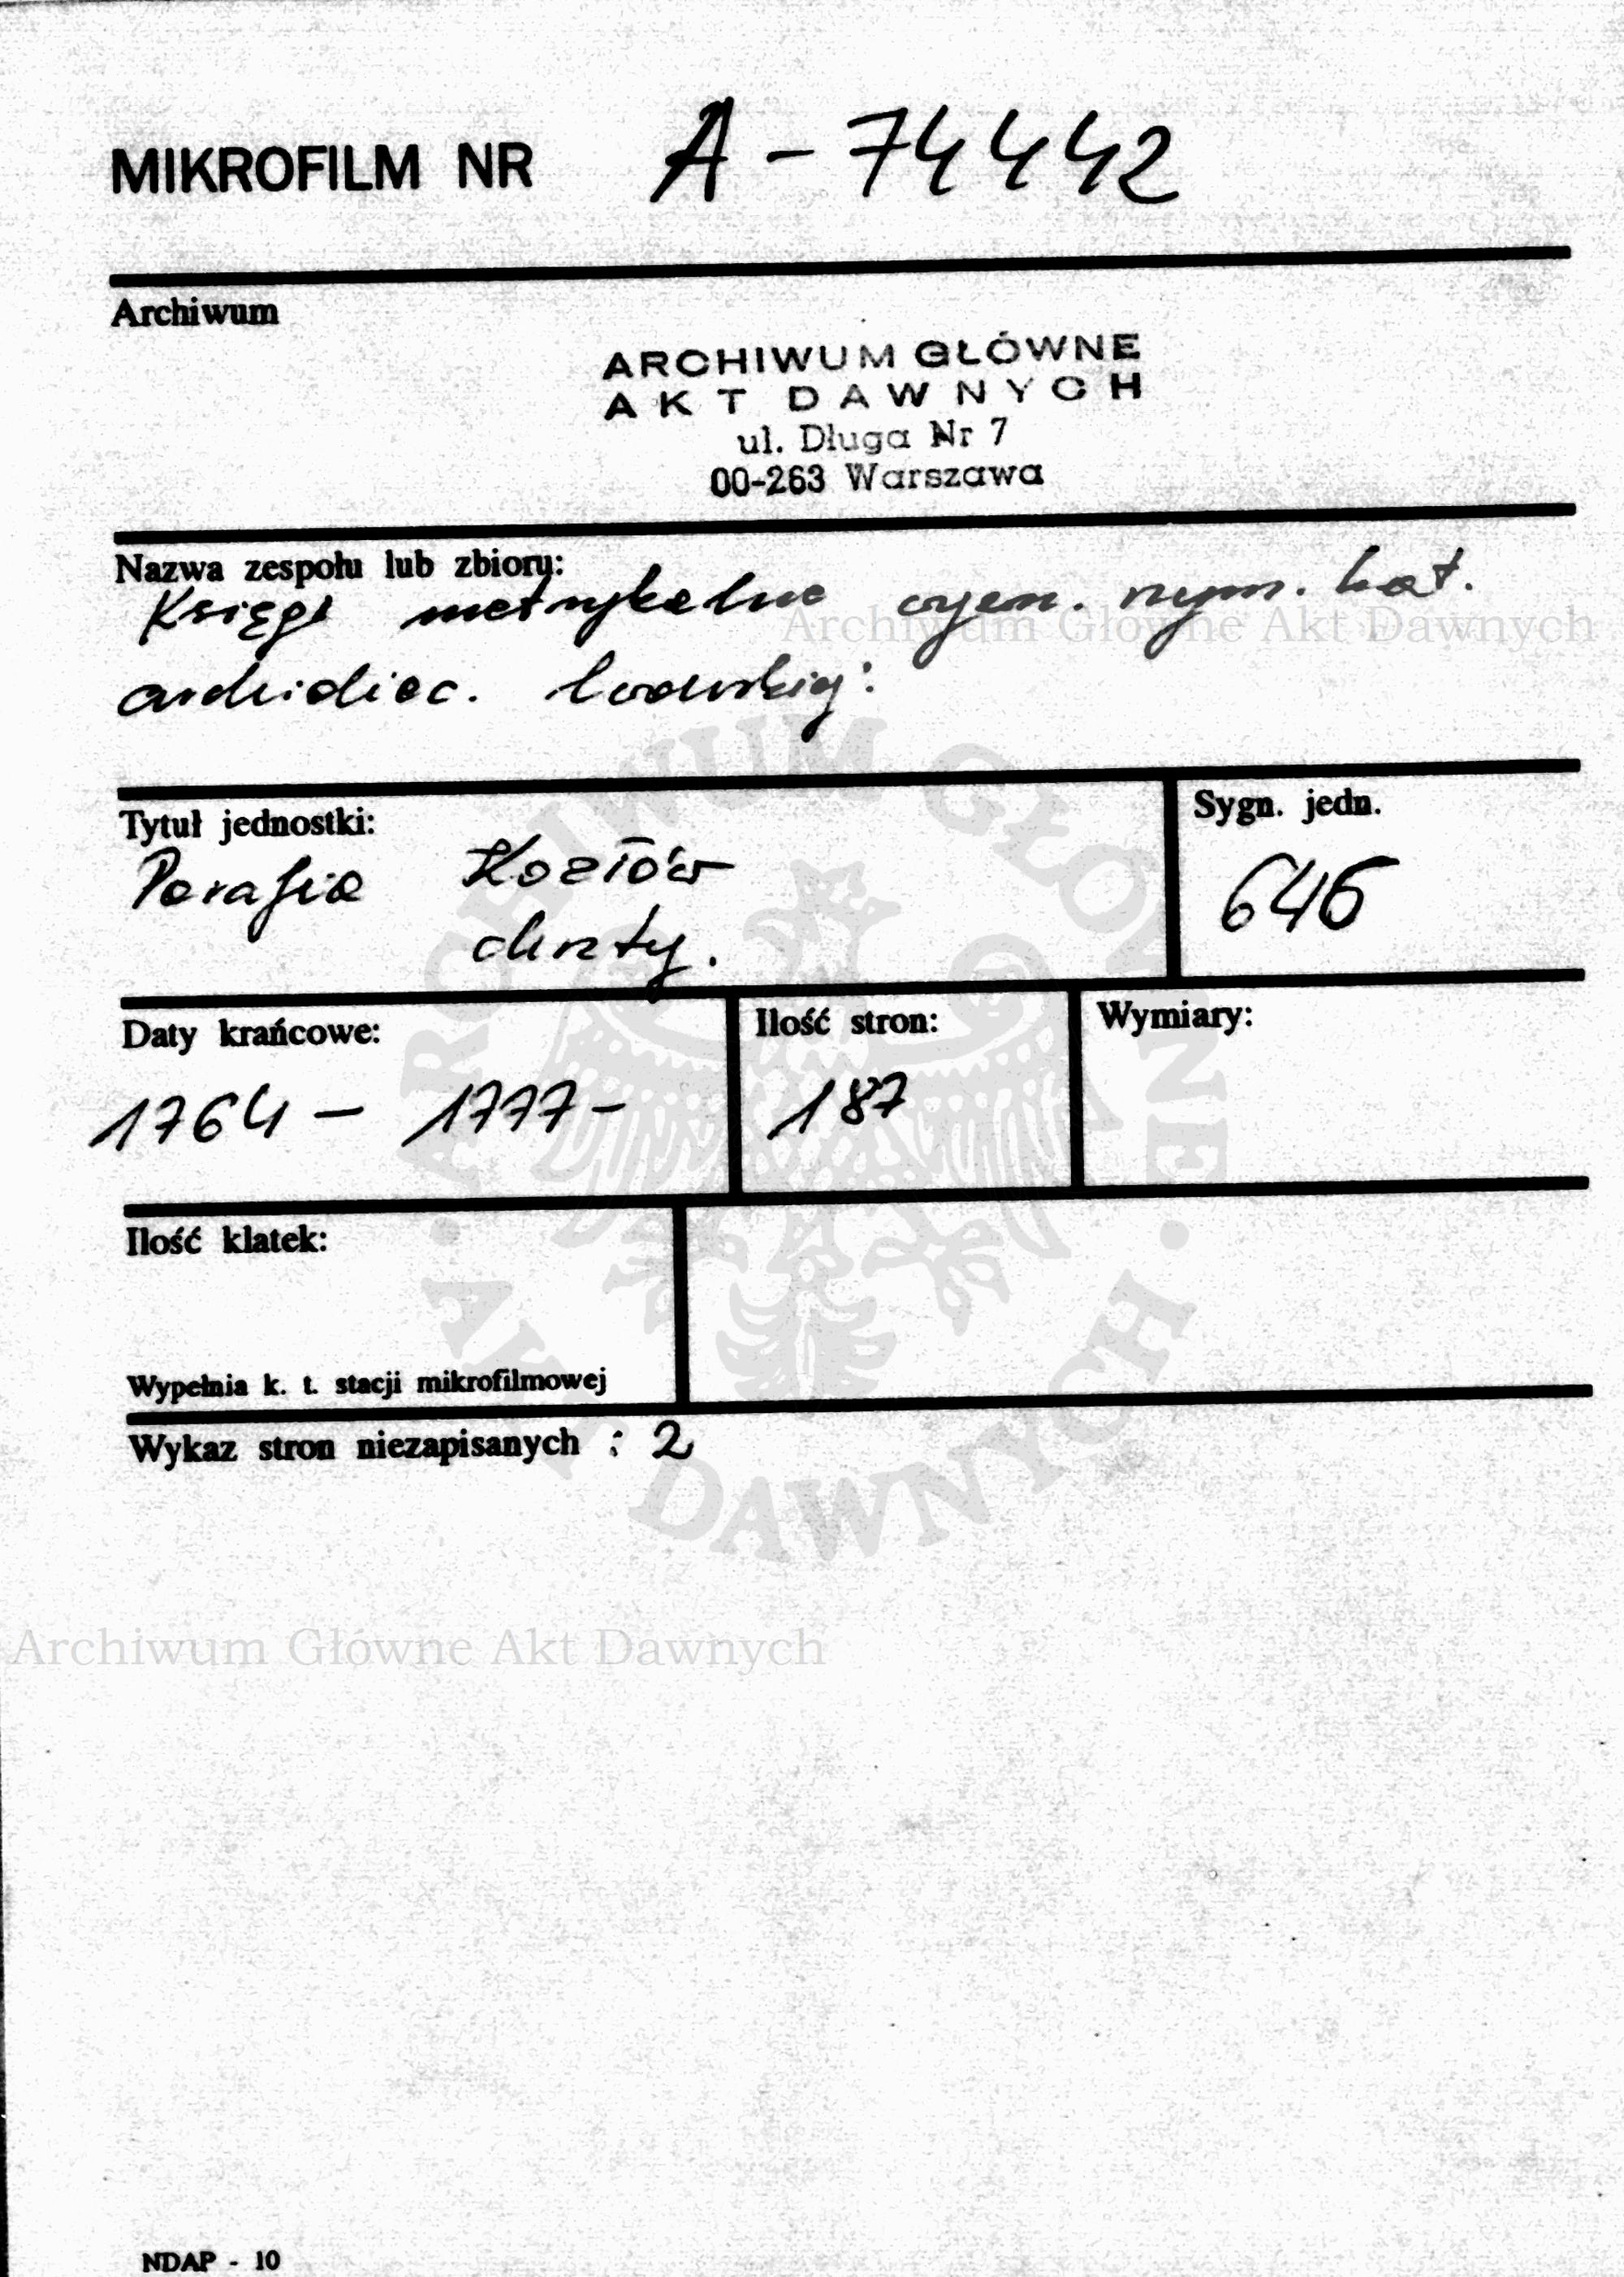 MIKROFILM NR A-74442
Archiwum
ARCHIWUM GŁÓWNE
AKT DAWNYCH
ul. Długa Nr 7
00-263 Warszawa
Nazwa zespołu lub zbioru:
Księgi metrykalne rzym. kat.
Archiwum Główne Akt Dawnych
archidiec. lwowskiej
Tytuł jednostki:
Parafia Kozłów
chrzty.
Sygn. jedn.
646
Daty krańcowe:
1764 - 1777 -
Ilość stron:
187
Wymiary:
Ilość klatek:
Wypełnia k. t. stacji mikrofilmowej
Wykaz stron niezapisanych : 2
ARCHIWUM GŁÓWNE
AKT DAWNYCH
Archiwum Główne Akt Dawnych
NDAP - 10